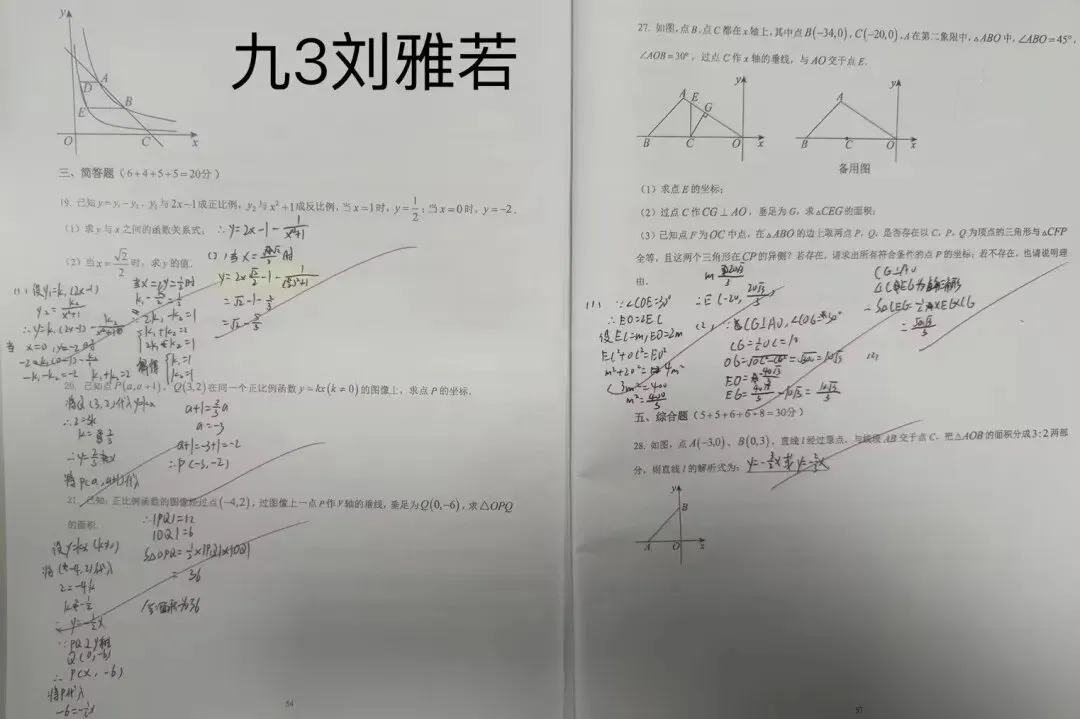 九3刘雅若
y
A
D
E
B
O
C
x
三、简答题（6+4+5+5=20分）
19. 已知y=y₁-y₂, y₁与2x-1成正比例, y₂与x²+1成反比例, 当x=1时, y=1/2; 当x=0时, y=-2.
（1）求y与x之间的函数关系式; ∴y=2x-1-1/(x²+1)
（2）当x=√2/2时, 求y的值.
(1) 设y₁=k₁(2x-1)
y₂=k₂/(x²+1)
当x=0, y=-2时
-k₁-k₂=-2
k₁+k₂=2
2k₁-k₂=1
k₁=1
k₂=1
=√2-1-2/3
=√2-5/3
20. 已知点P(a,a+1), Q(3,2)在同一个正比例函数y=kx(k≠0)的图像上, 求点P的坐标.
将Q(3,2)代入y=kx
∴2=3k
a+1=2/3a
a=-3
a+1=-3+1=-2
∴P(-3,-2)
21. 已知: 正比例函数的图像经过点(-4,2), 过图像上一点P作y轴的垂线, 垂足为Q(0,-6), 求△OPQ
的面积.
设y=kx(k≠0)
2=-4k
k=-1/2
∴y=-1/2x
Q(0,-6)
∴P(x,-6)
将P代入
-6=-1/2x
∴|PQ|=12
|OQ|=6
S△OPQ=1/2×|PQ|×|OQ|
=36
54
27. 如图, 点B, 点C都在x轴上, 其中点B(-34,0), C(-20,0), A在第二象限中, △ABO中, ∠ABO=45°,
∠AOB=30°, 过点C作x轴的垂线, 与AO交于点E.
y
A
E
G
B
C
O
x
y
A
B
C
O
x
备用图
（1）求点E的坐标;
（2）过点C作CG⊥AO, 垂足为G, 求△CEG的面积;
（3）已知点F为OC中点, 在△ABO的边上取两点P, Q, 是否存在以C, P, Q为顶点的三角形与△CFP
全等, 且这两个三角形在CP的异侧? 若存在, 请求出所有符合条件的点P的坐标; 若不存在, 也请说明理
由.
(1) ∵∠COE=30°
∴EO=2EC
设EC=m, EO=2m
EC²+OC²=EO²
m²+20²=4m²
3m²=400
m²=400/3
∴E(-20, 20√3/3)
CG=1/2OC=10
CG⊥AO
=50√3/3
五、综合题（5+5+6+6+8=30分）
28. 如图, 点A(-3,0)、B(0,3), 直线l经过原点, 与线段AB交于点C, 把△AOB的面积分成3:2两部
分, 则直线l的解析式为: y=-2/3x或y=-3/2x
y
B
A
O
x
57